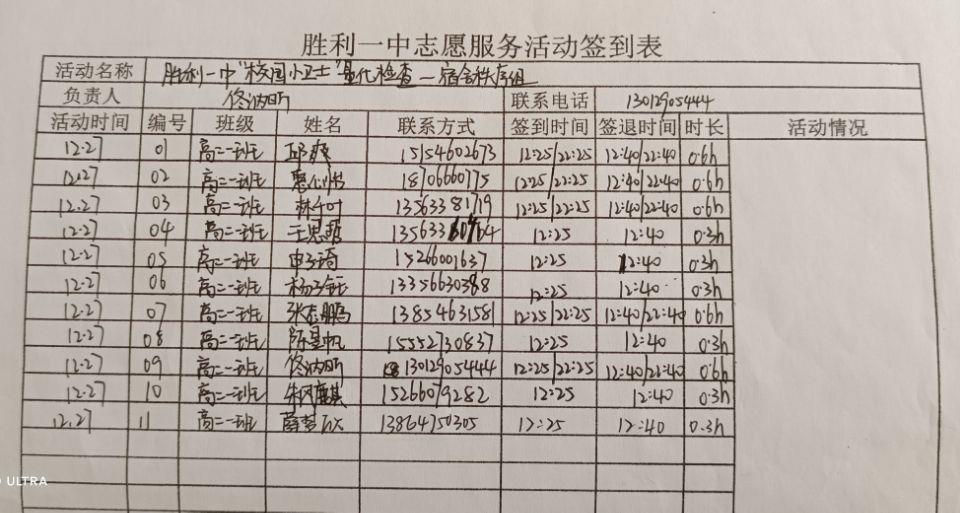 胜利一中志愿服务活动签到表
活动名称 胜利一中"校园小卫士"量化检查—宿舍秩序组
负责人 佟汭昕 联系电话 13012905444
活动时间 编号 班级 姓名 联系方式 签到时间 签退时间 时长 活动情况
12.27 01 高二一班 邱爽 15154602673 12:25/22:25 12:40/22:40 0.6h
12.27 02 高二一班 18706660775 12:25/22:25 12:40/22:40 0.6h
12.27 03 高二一班 林千叶 13563381719 12:25/22:25 12:40/22:40 0.6h
12.27 04 高二一班 王思哲 12:25 12:40 0.3h
12.27 05 高二一班 申子琦 15266001637 12:25 12:40 0.3h
12.27 06 高二一班 杨子钰 13356630388 12:25 12:40 0.3h
12.27 07 高二一班 张志鹏 13854631581 12:25/22:25 12:40/22:40 0.6h
12.27 08 高二一班 陈星帆 15552730837 12:25 12:40 0.3h
12.27 09 高二一班 佟汭昕 13012905444 12:25/22:25 12:40/22:40 0.6h
12.27 10 高二一班 朱冈麒 15266079282 12:25 12:40 0.3h
12.27 11 高二一班 薛梦 13864750305 12:25 12:40 0.3h
ULTRA